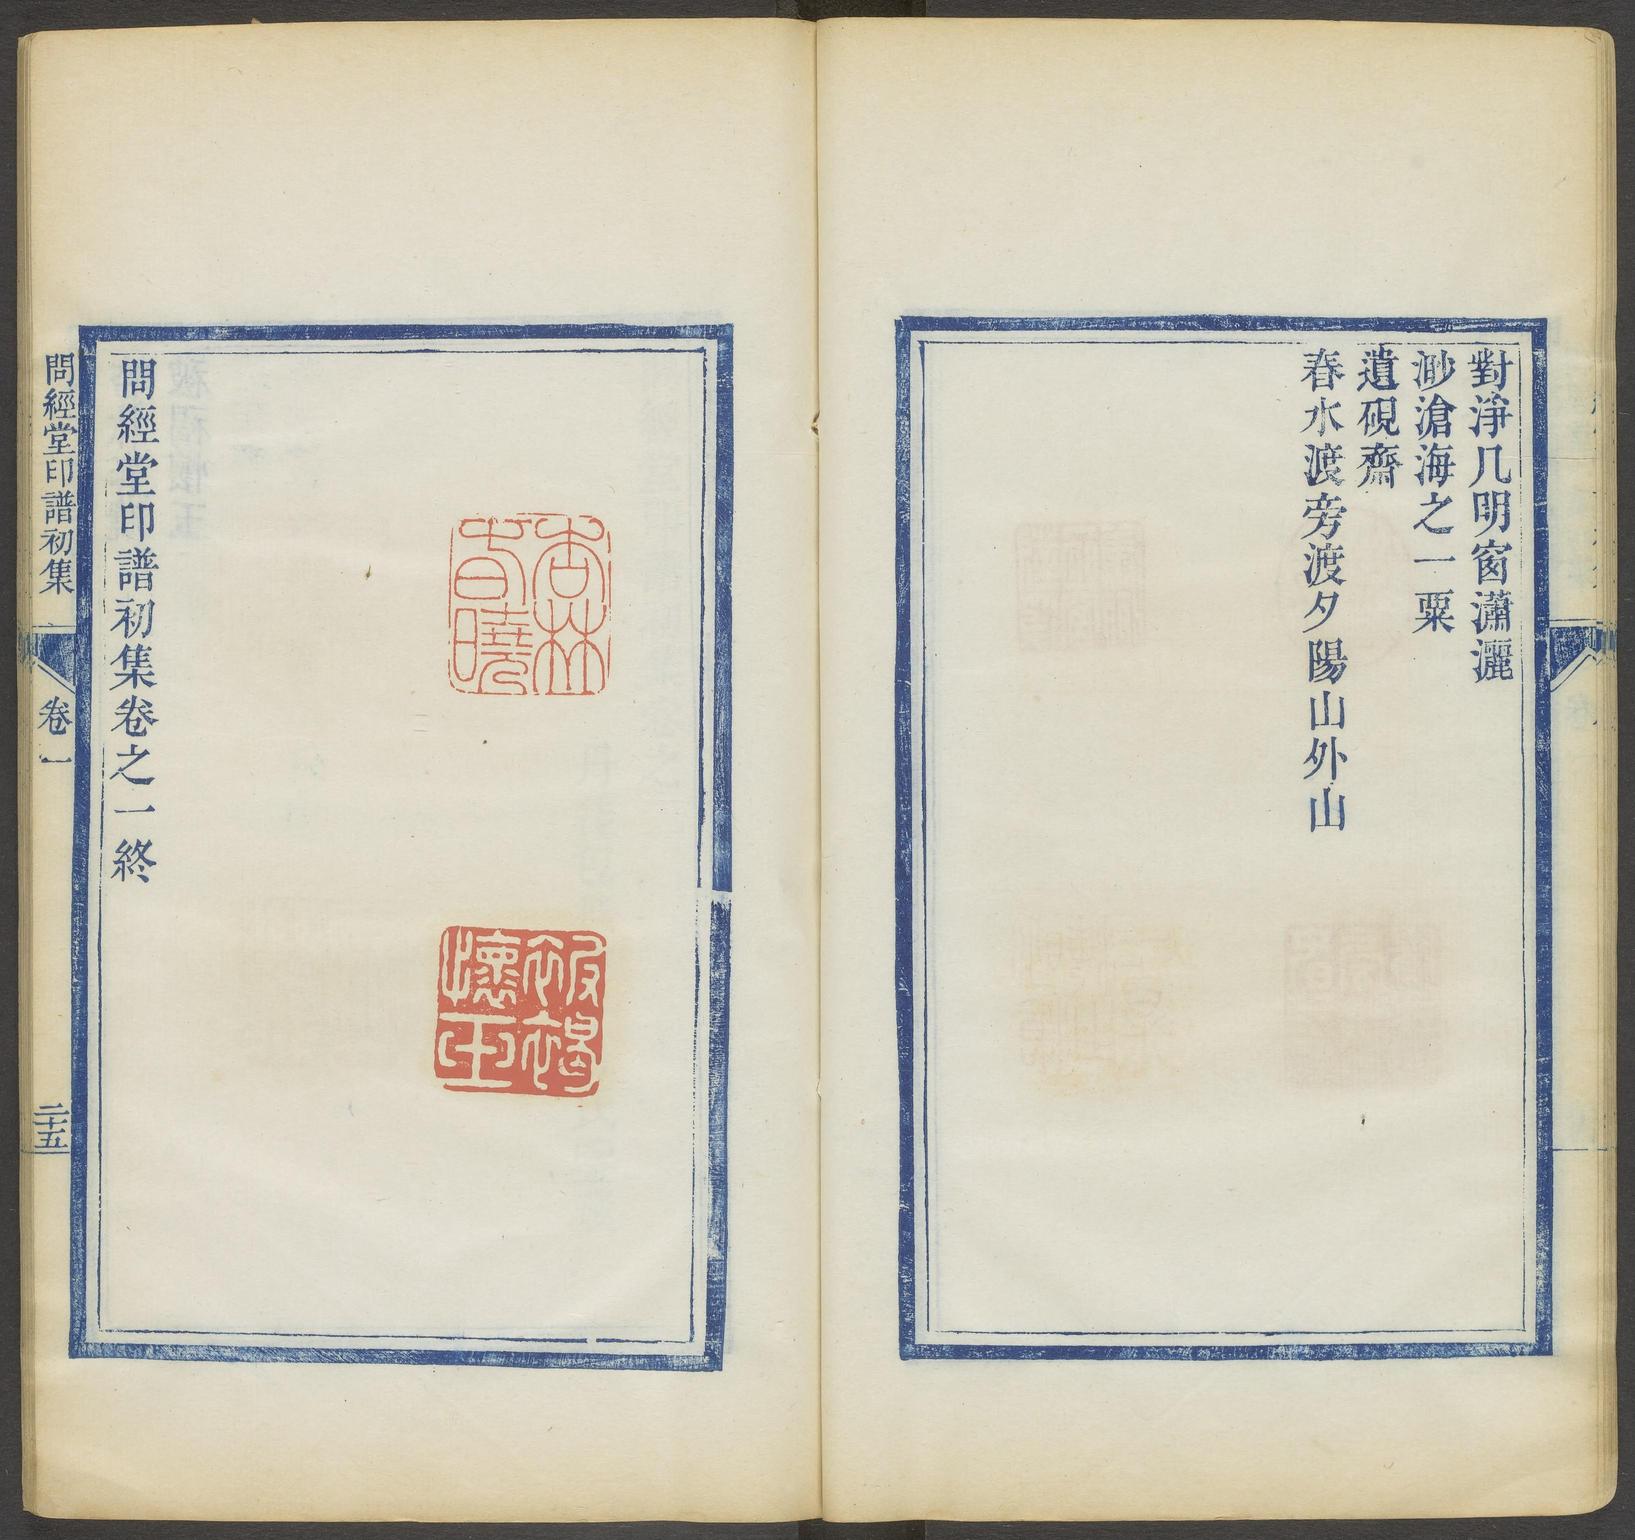 對淨几明窗瀟灑
渺滄海之一粟
遺硯齋
春水渡旁渡夕陽山外山
杏林春曉
被褐懷玉
問經堂印譜初集卷之一終
問經堂印譜初集
卷一
二十五